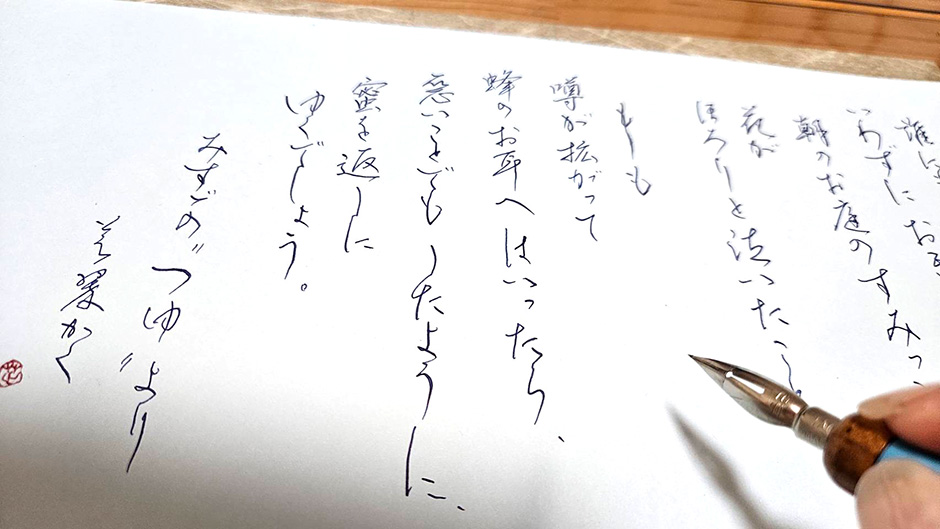 誰に
いわずにお
朝のお庭のすみっ
花が
ほろりと泣いたこ
もしも
噂が拡がって
蜂のお耳へはいったら、
悪いことでもしたように、
蜜を返しに
ゆくでしょう。
みすゞの“つゆ”より
翠かく